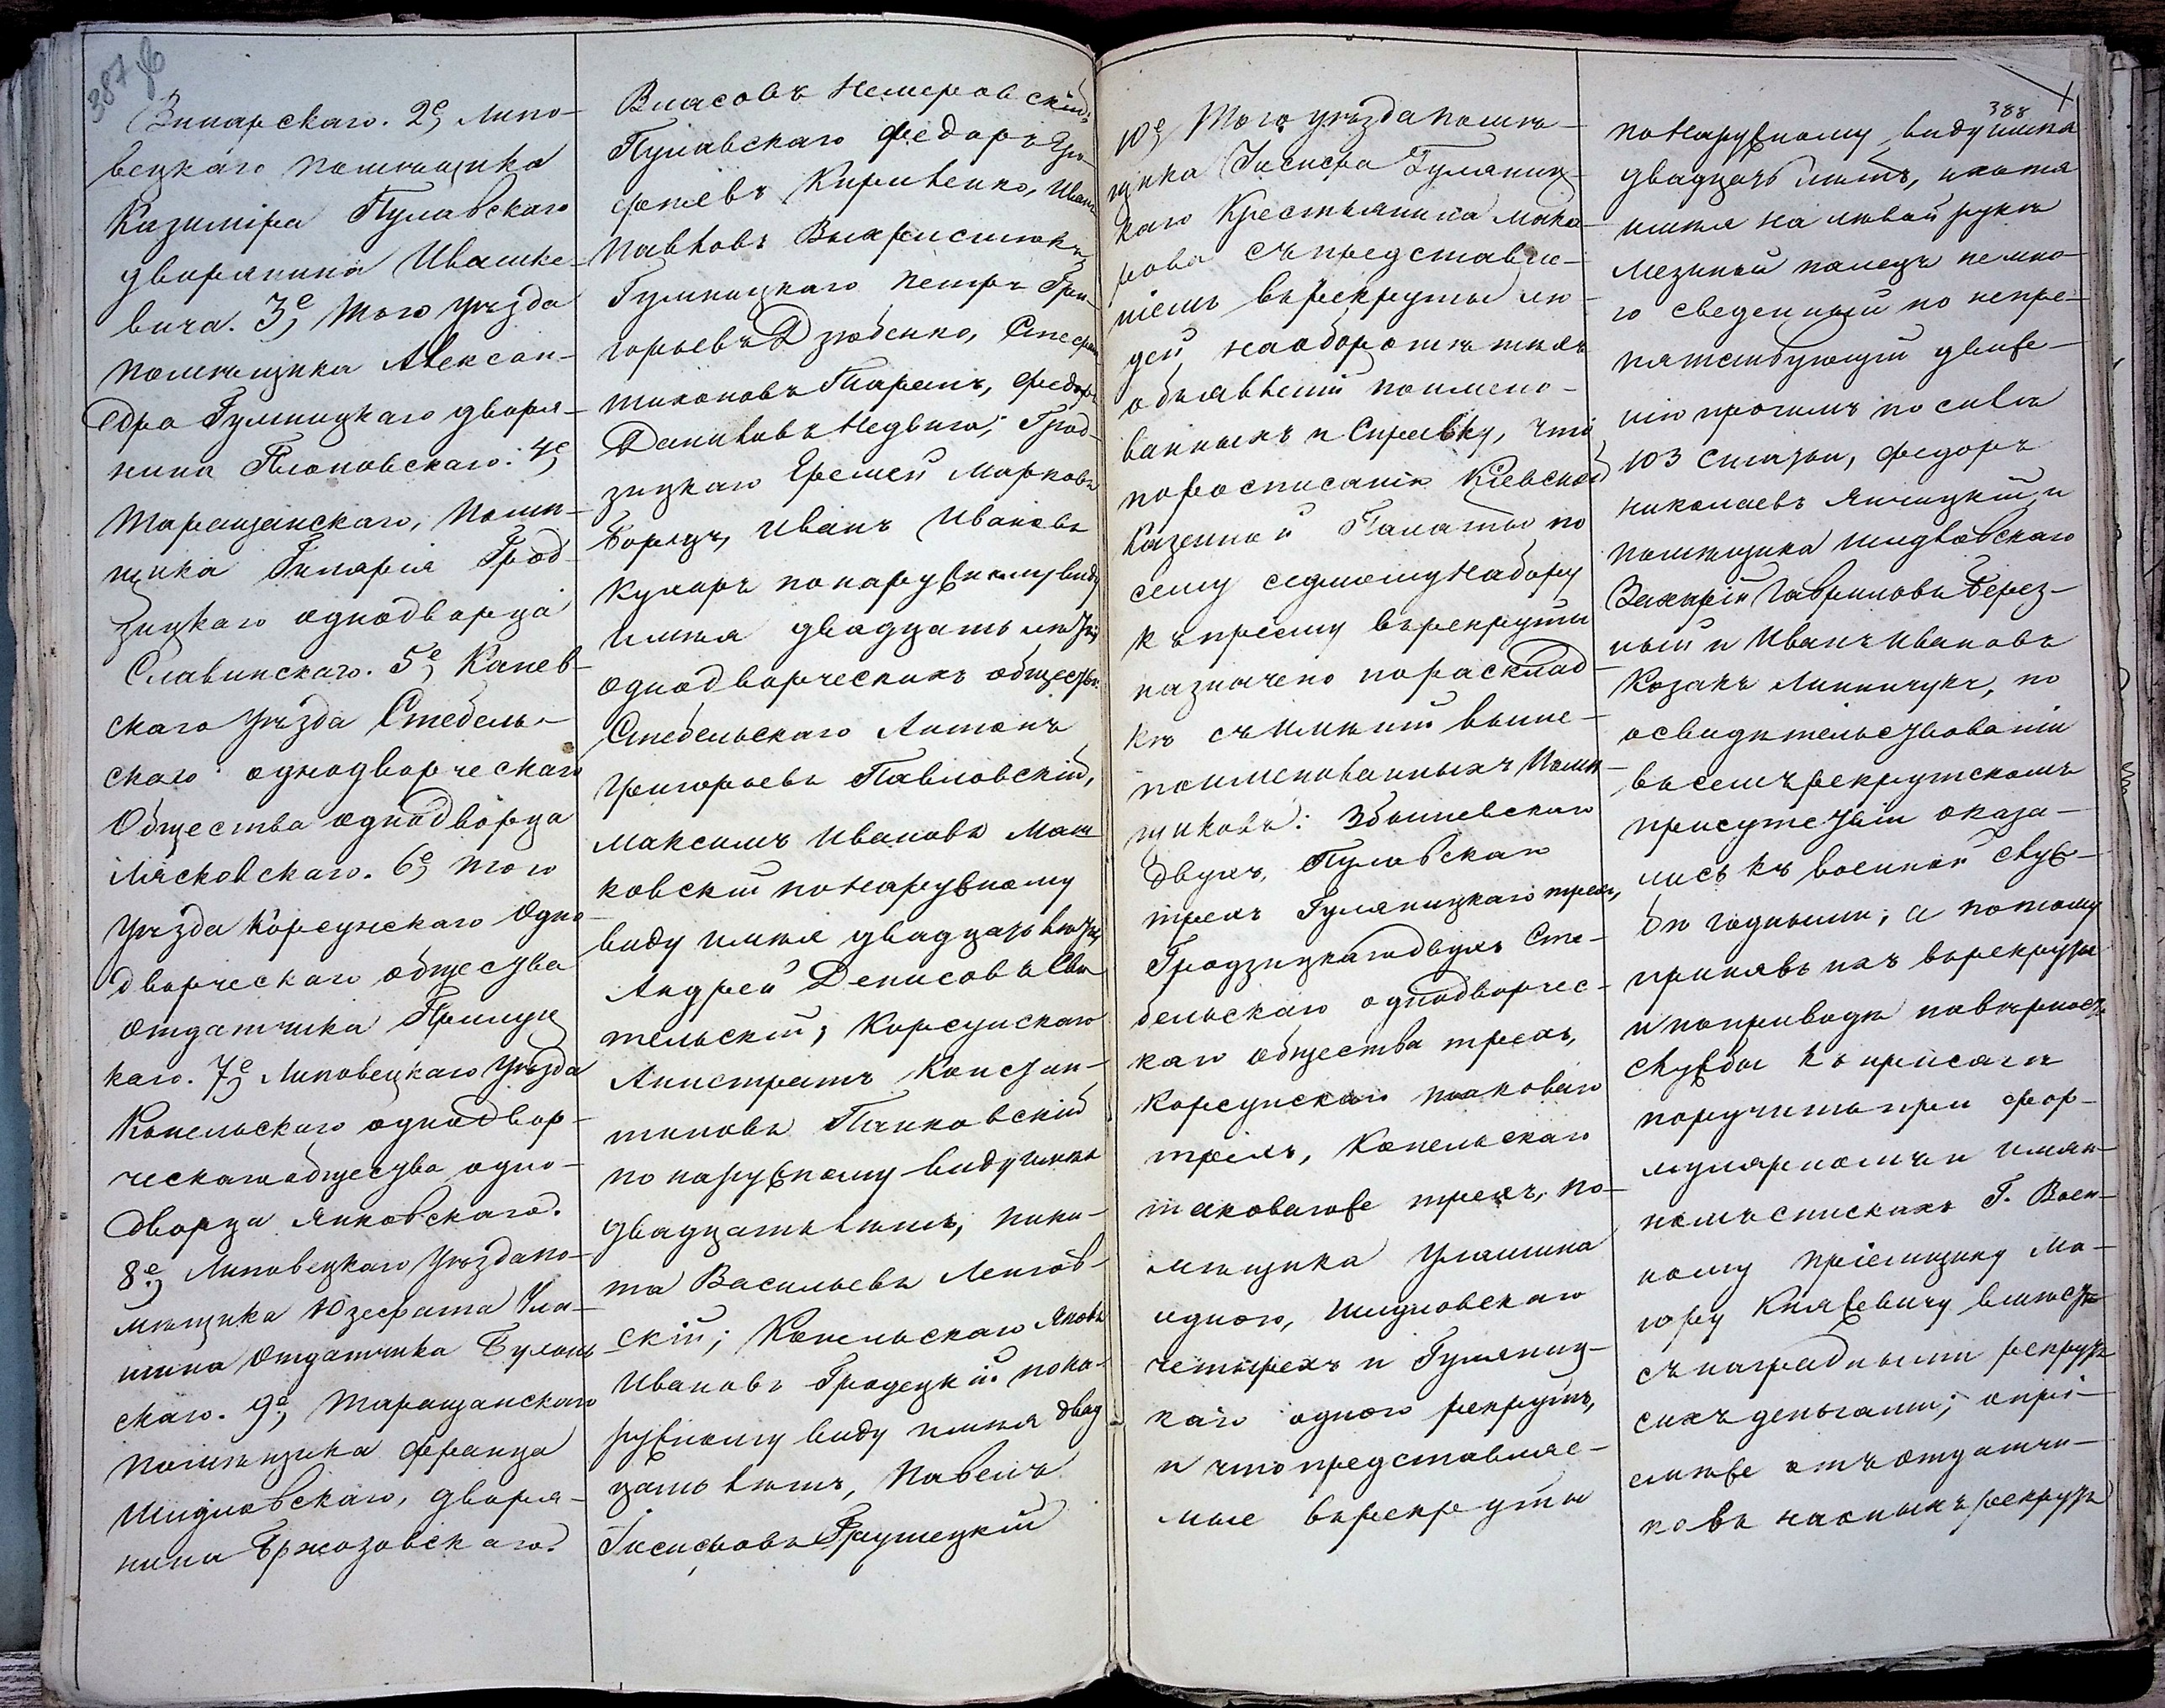 387 об
Винарскаго. 2е, Липо-
вецкаго помѣщика
Казимира Пулавскаго
дворянина Ивашке-
вича. 3е, того уѣзда
помѣщика Алексан-
дра Гуляницкаго дворя-
нина Плоновскаго. 4е,
Таращанскаго, помѣ-
щика Гилярія Грод-
зицкаго однодворца
Славинскаго. 5е, Канев-
скаго уѣзда Стебель-
скаго однодворческаго
Общества однодворца
Лясковскаго. 6е, того
уѣзда Корсунскаго одно-
дворческаго общества
отдатчика Прилуц
каго. 7е, Липовецкаго уѣзда
Конельскаго однодвор-
ческаго общества одно-
дворца Янковскаго.
8е, Липовецкаго уѣзда по-
мѣщика Юзефата Ула-
шина отдатчика Булан
скаго. 9е, Таращанскаго
помѣщика Франца
Шидловскаго, дворя-
нина Бржозовскаго.
Власовъ Немеровскій;
Пулавскаго Федоръ
Кириленко, Иванъ
Павловъ
Гуляницкаго Петръ Гри-
горьевъ Дзюбенко, Стефанъ
Тихоновъ Царань, Федоръ
Даниловъ Недвига; Грод-
зицкаго Еремей Марковъ
Борецъ, Иванъ Ивановъ
Кухаръ по наружному виду
имѣя двадцать лѣтъ;
однодворческихъ обществъ
Стебельскаго Антонъ
Григорьевъ Павловскій,
Максимъ Ивановъ Маш
ковскій по наружному
виду имѣя двадцать лѣтъ,
Андрей Денисовъ Сви
тельскій; Корсунскаго
Анистратъ Констан-
тиновъ Панковскій
по наружному виду имѣя
двадцать лѣтъ, Ники-
та Васильевъ Лентов-
скій; Конельскаго Яковъ
Ивановъ Гродецкій по на-
ружному виду имѣя двад
цать лѣтъ, Павелъ
Іосифовъ Грушецкій
10е, Того уѣзда помѣ-
щика Іосифа Гуляниц-
каго Крестьянина Мака-
рова съ представле-
ніемъ въ рекруты лю-
дей, на оборотѣ тѣхъ
объявленій поимено-
ванныхъ и Справку, что
по росписанію Кіевской
Казенной Палаты по
сему седьмому набору
къ пріему въ рекруты
назначено по расклад-
кѣ съ имѣній выше-
поименованныхъ помѣ-
щиковъ: Збышевскаго
двухъ, Пулавскаго
трехъ Гуляницкаго трехъ,
Гродзицкаго двухъ Сте-
бельскаго однодворчес-
каго общества трехъ,
Корсунскаго таковаго
трехъ, Конельскаго
таковагоже трехъ, по-
мѣщика Улашина
одного, Шидловскаго
четырехъ и Гуляниц-
каго одного рекрутъ,
и что представляе-
мые въ рекруты
388
по наружному виду имѣя
двадцать лѣтъ, и хотя
имѣя на лѣвой рукѣ
мезиный палецъ немно-
го сведенный но непре-
пятствующій движе-
нію прочимъ по силѣ
103 статьи, Федоръ
Николаевъ Янчицкій, и
помѣщика Шидловскаго
Захарій Гавриловъ Берез-
ный и Иванъ Ивановъ
Козакъ Линничукъ, по
освидѣтельствованіи
въ семъ рекрутскомъ
присутствіи оказа-
лись къ военной служ-
бѣ годными; а потому
принявъ ихъ въ рекруты
и по приводѣ на вѣрность
службы къ присягѣ
поручить при фор-
мулярномъ и имян-
номъ спискахъ Г. Воен-
ному пріемщику Ма-
іору Княжевичу вмѣстѣ
съ наградными рекрутъ
сихъ деньгами; о прі-
емѣже отъ отдатчи-
ковъ наемныхъ рекрутъ